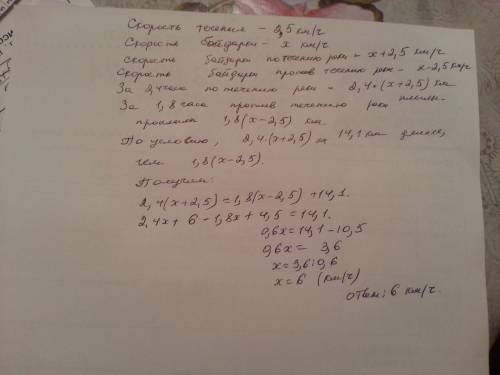 Скорость течения – 2,5 км/ч
Скорость байдарки – x км/ч
Скорость байдарки по течению реки – x+2,5 км/ч
Скорость байдарки против течению реки – x-2,5 км/ч
За 2,4 часа по течению реки = 2,4·(x+2,5) км
За 1,8 часа против течению реки
проплыли 1,8(x-2,5) км.
По условию, 2,4·(x+2,5) на 14,1 км длиннее,
чем 1,8(x-2,5).
Получим:
2,4(x+2,5)=1,8(x-2,5)+14,1.
2,4x+6-1,8x+4,5=14,1.
0,6x=14,1-10,5
0,6x= 3,6
x=3,6:0,6
x=6 (км/ч)
ответ: 6 км/ч.